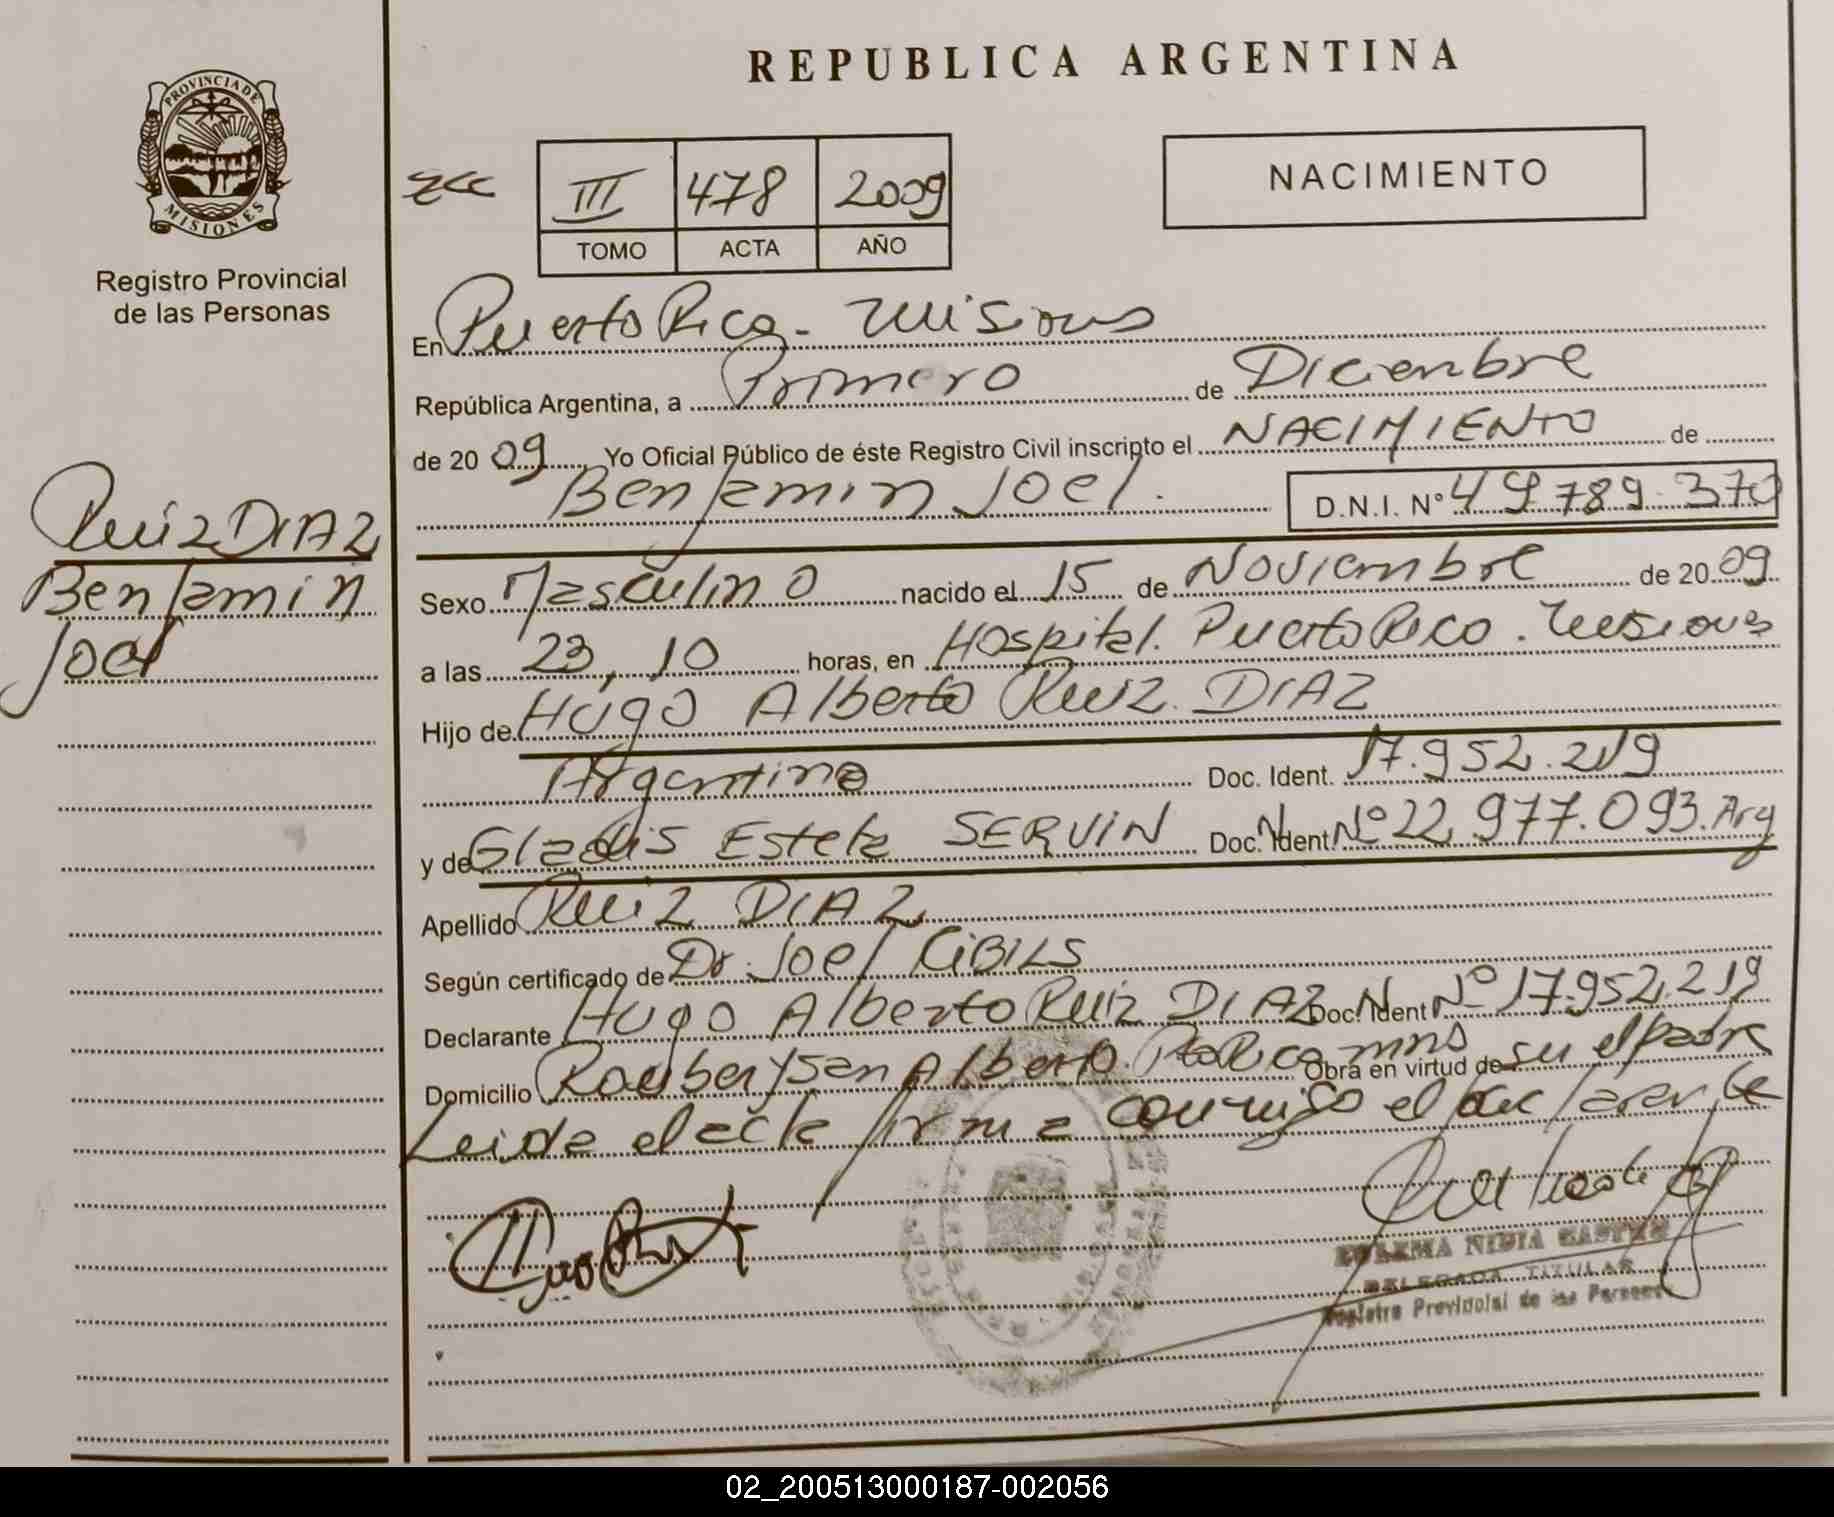 REPUBLICA ARGENTINA
PROVINCIA DE
MISIONES
Registro Provincial
de las Personas
III 478 2009
TOMO ACTA AÑO
NACIMIENTO
En Puerto Rico - Misiones
República Argentina, a Primero de Diciembre
de 2009 Yo Oficial Público de éste Registro Civil inscripto el NACIMIENTO de
Benjamin Joel. D.N.I. Nº 49.789.370
Ruiz DIAZ
Benjamin
Joel
Sexo Masculino nacido el 15 de Noviembre de 2009
a las 23,10 horas, en Hospital. Puerto Rico. Misiones
Hijo de Hugo Alberto Ruiz DIAZ
Argentino Doc. Ident. 17.952.219
y de Gladis Estela SERVIN Doc. Ident. Nº 22.977.093. Arg
Apellido Ruiz DIAZ
Según certificado de Dr. Joel CIBILS
Declarante Hugo Alberto Ruiz DIAZ Doc. Ident Nº 17.952.219
Domicilio Alberto. Pto Rico mns Obra en virtud de su el padre
Leida el acta firma conmigo el declarante
NIDIA
DELEGADA TITULAR
Registro Provincial de las Personas
02_200513000187-002056